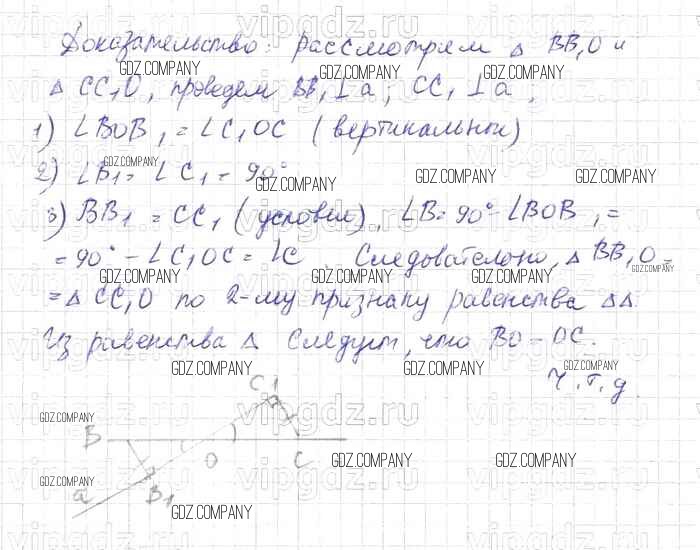 Доказательство: рассмотрем △ BB₁O и
△ CC₁O, проведем BB₁⊥a; CC₁⊥a;
1) ∠BOB₁ = ∠C₁OC (вертикальные)
2) ∠B₁ = ∠C₁ = 90°
3) BB₁ = CC₁ (условия), ∠B = 90° - ∠BOB₁ =
= 90° - ∠C₁OC = ∠C. Следователоно, △ BB₁O =
= △ CC₁O по 2-му признаку равенства △△.
Из равенства △ следует, что BO - OC.
Ч.т.д.
C1
B
O
C
a
B1
vipgdz.ru
GDZ.COMPANY